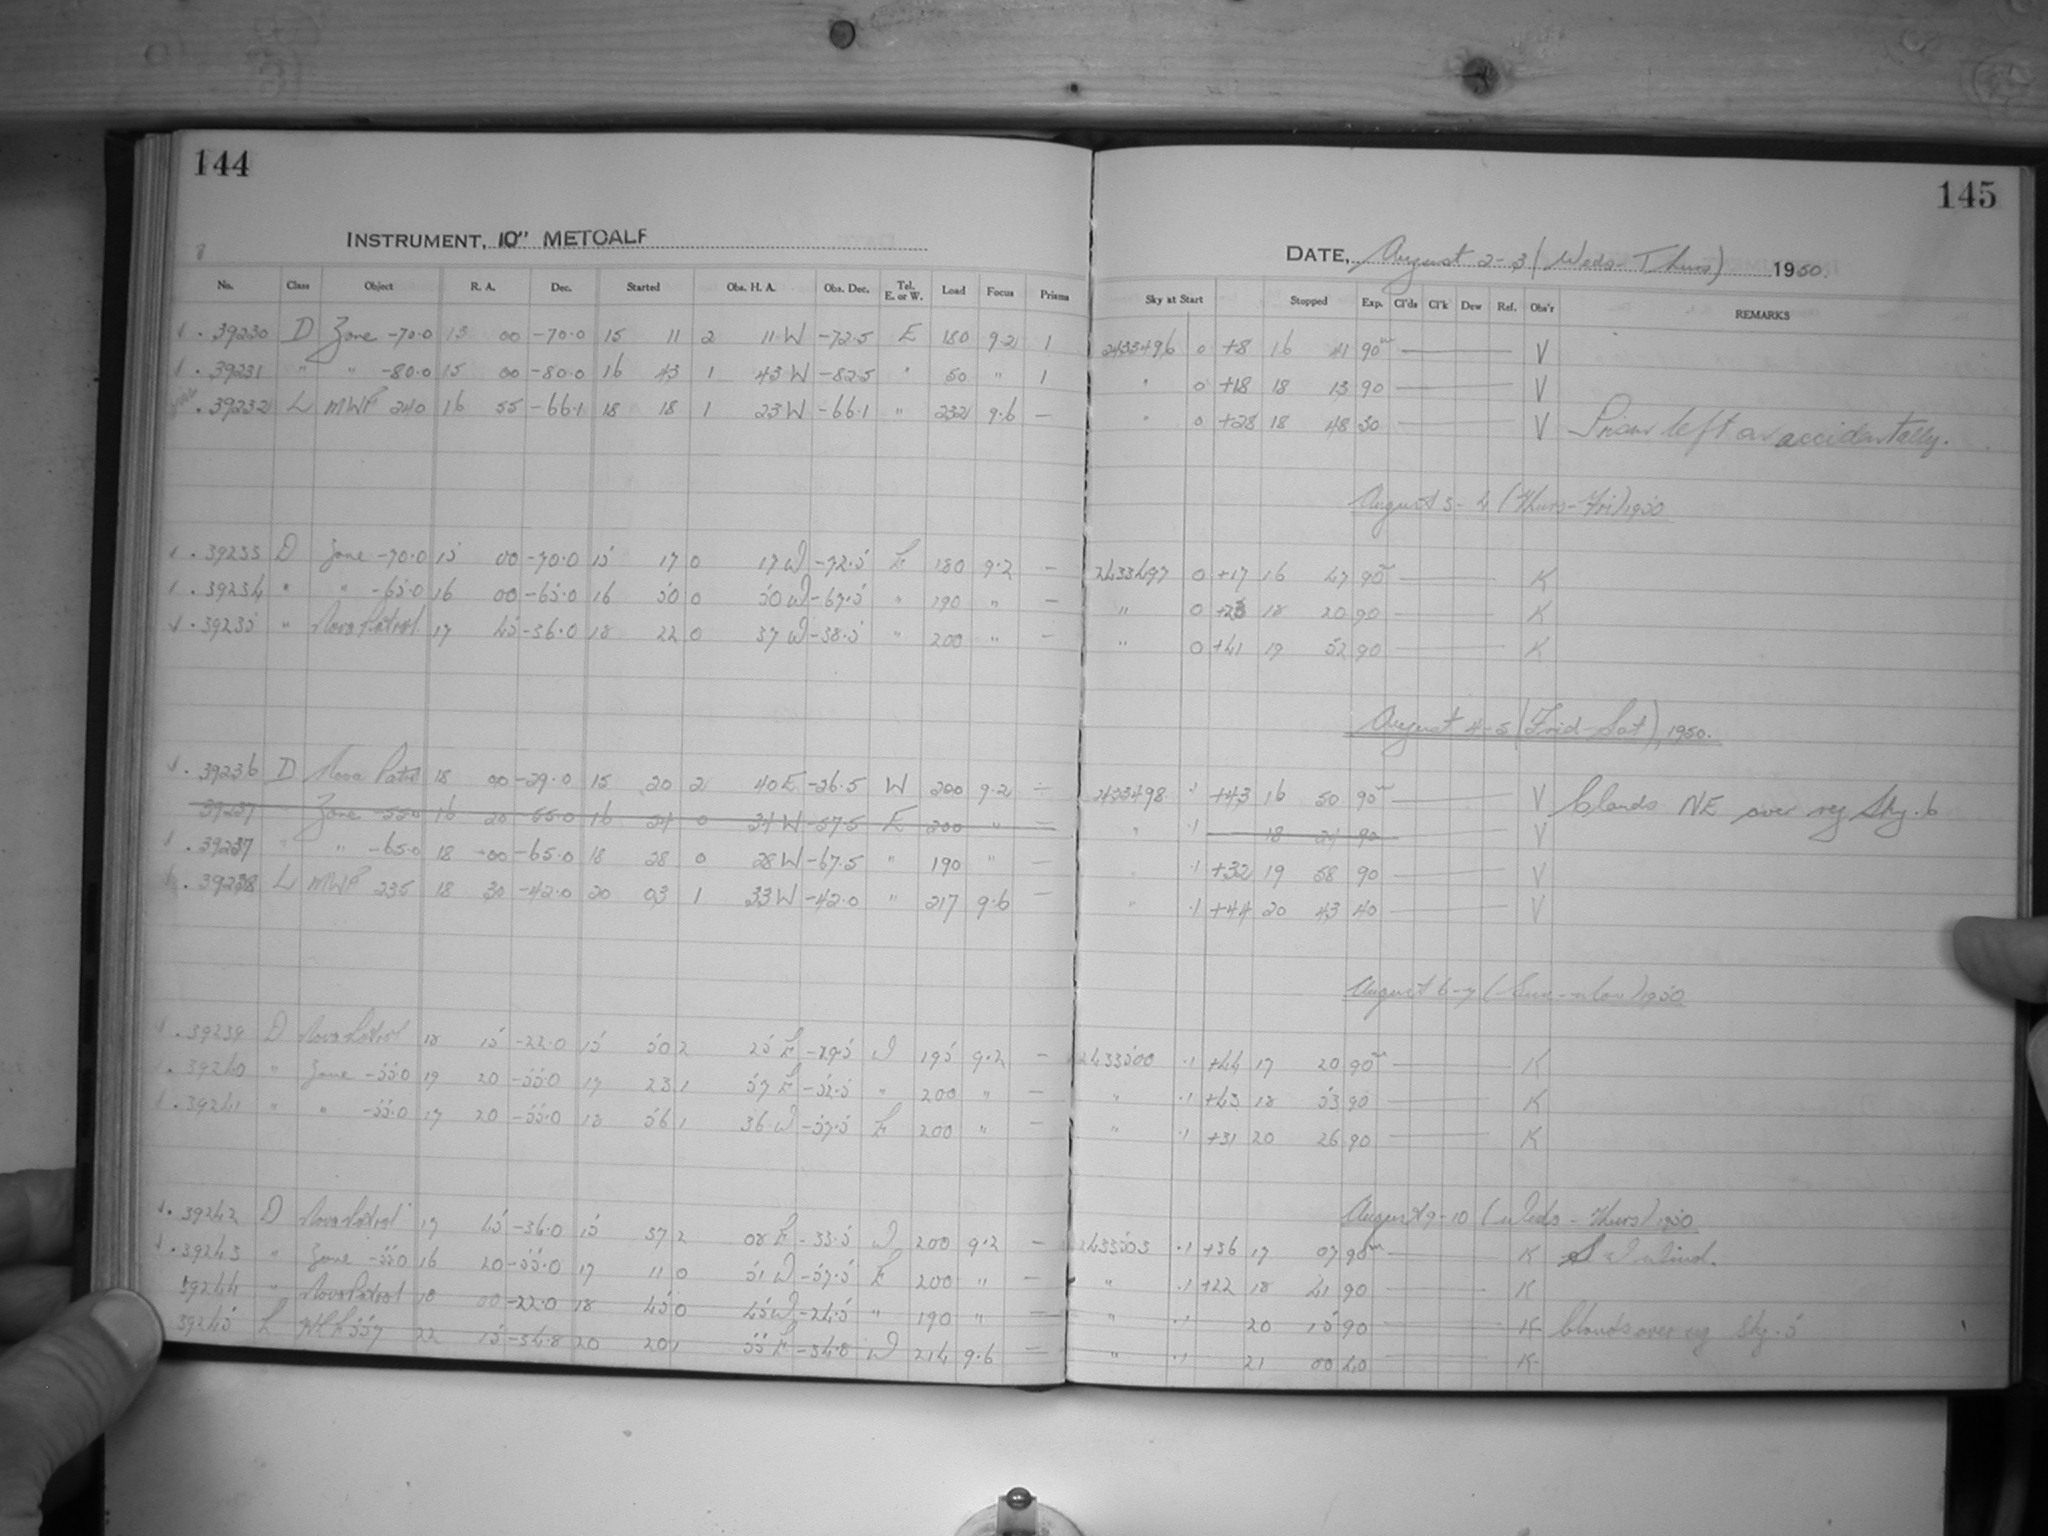 144
INSTRUMENT, 10" METCALF
No. Class Object R. A. Dec. Started Obs. H. A. Obs. Dec. Tel. E. or W. Load Focus Prisms
. 39230 D Zone -70.0 13 00 -70.0 15 11 2 11 W -72.5 E 180 9.2 1
. 39231 " " -80.0 15 00 -80.0 16 43 1 43 W -82.5 " 50 " 1
. 39232 L MWF 240 16 55 -66.1 18 18 1 23 W -66.1 " 232 9.6 —
. 39233 D Zone -70.0 15 00 -70.0 15 17 0 17 W -72.5 E 180 9.2 —
. 39234 " " -65.0 16 00 -65.0 16 50 0 50 W -67.5 " 190 " —
. 39235 " Nova Patrol 17 45 -36.0 18 22 0 37 W -38.5 " 200 " —
. 39236 D Nova Patrol 18 00 -29.0 15 20 2 40 E -26.5 W 200 9.2 —
39237 Zone -55.0 16 20 -55.0 16 54 0 34 W -57.5 E 200 " —
. 39237 " " -65.0 18 00 -65.0 18 28 0 28 W -67.5 " 190 " —
. 39238 L MWF 235 18 30 -42.0 20 03 1 33 W -42.0 " 217 9.6 —
. 39239 D Nova Patrol 18 15 -22.0 15 50 2 25 E -19.5 W 195 9.2 —
. 39240 " Zone -55.0 19 20 -55.0 17 23 1 57 E -52.5 " 200 " —
. 39241 " " -55.0 17 20 -55.0 18 56 1 36 W -57.5 E 200 " —
. 39242 D Nova Patrol 17 45 -36.0 15 37 2 08 E -33.5 W 200 9.2 —
. 39243 " Zone -55.0 16 20 -55.0 17 11 0 51 W -57.5 E 200 " —
39244 " Nova Patrol 18 00 -22.0 18 45 0 45 W -24.5 " 190 " —
39245 L 22 15 -34.8 20 20 1 55 E -34.8 W 214 9.6 —
145
DATE, August 2-3 (Weds-Thurs) 1950.
Sky at Start Stopped Exp. Cl'ds Cl'k Dew Ref. Obs'r REMARKS
2433496 0 +8 16 41 90m V
" 0 +18 18 13 90 V
" 0 +28 18 48 30 V Prism left on accidentally.
August 3-4 (Thurs-Fri) 1950
2433497 0 +17 16 47 90m K
" 0 18 20 90 K
" 0 +41 19 52 90 K
August 4-5 (Frid-Sat), 1950.
2433498 .1 +43 16 50 90m V Clouds NE over rg Sky. 6
" .1 18 24 90 V
" .1 +32 19 58 90 V
" .1 +44 20 43 40 V
August 6-7 (Sun-Mon) 1950
2433500 .1 +44 17 20 90m K
" .1 +43 18 53 90 K
" .1 +31 20 26 90 K
August 9-10 (Weds-Thurs) 1950
2433503 .1 +36 17 07 90m K S W Wind.
" .1 +22 18 41 90 K
" .1 20 15 90 K Clouds over rg Sky. 5
" .1 21 00 40 K